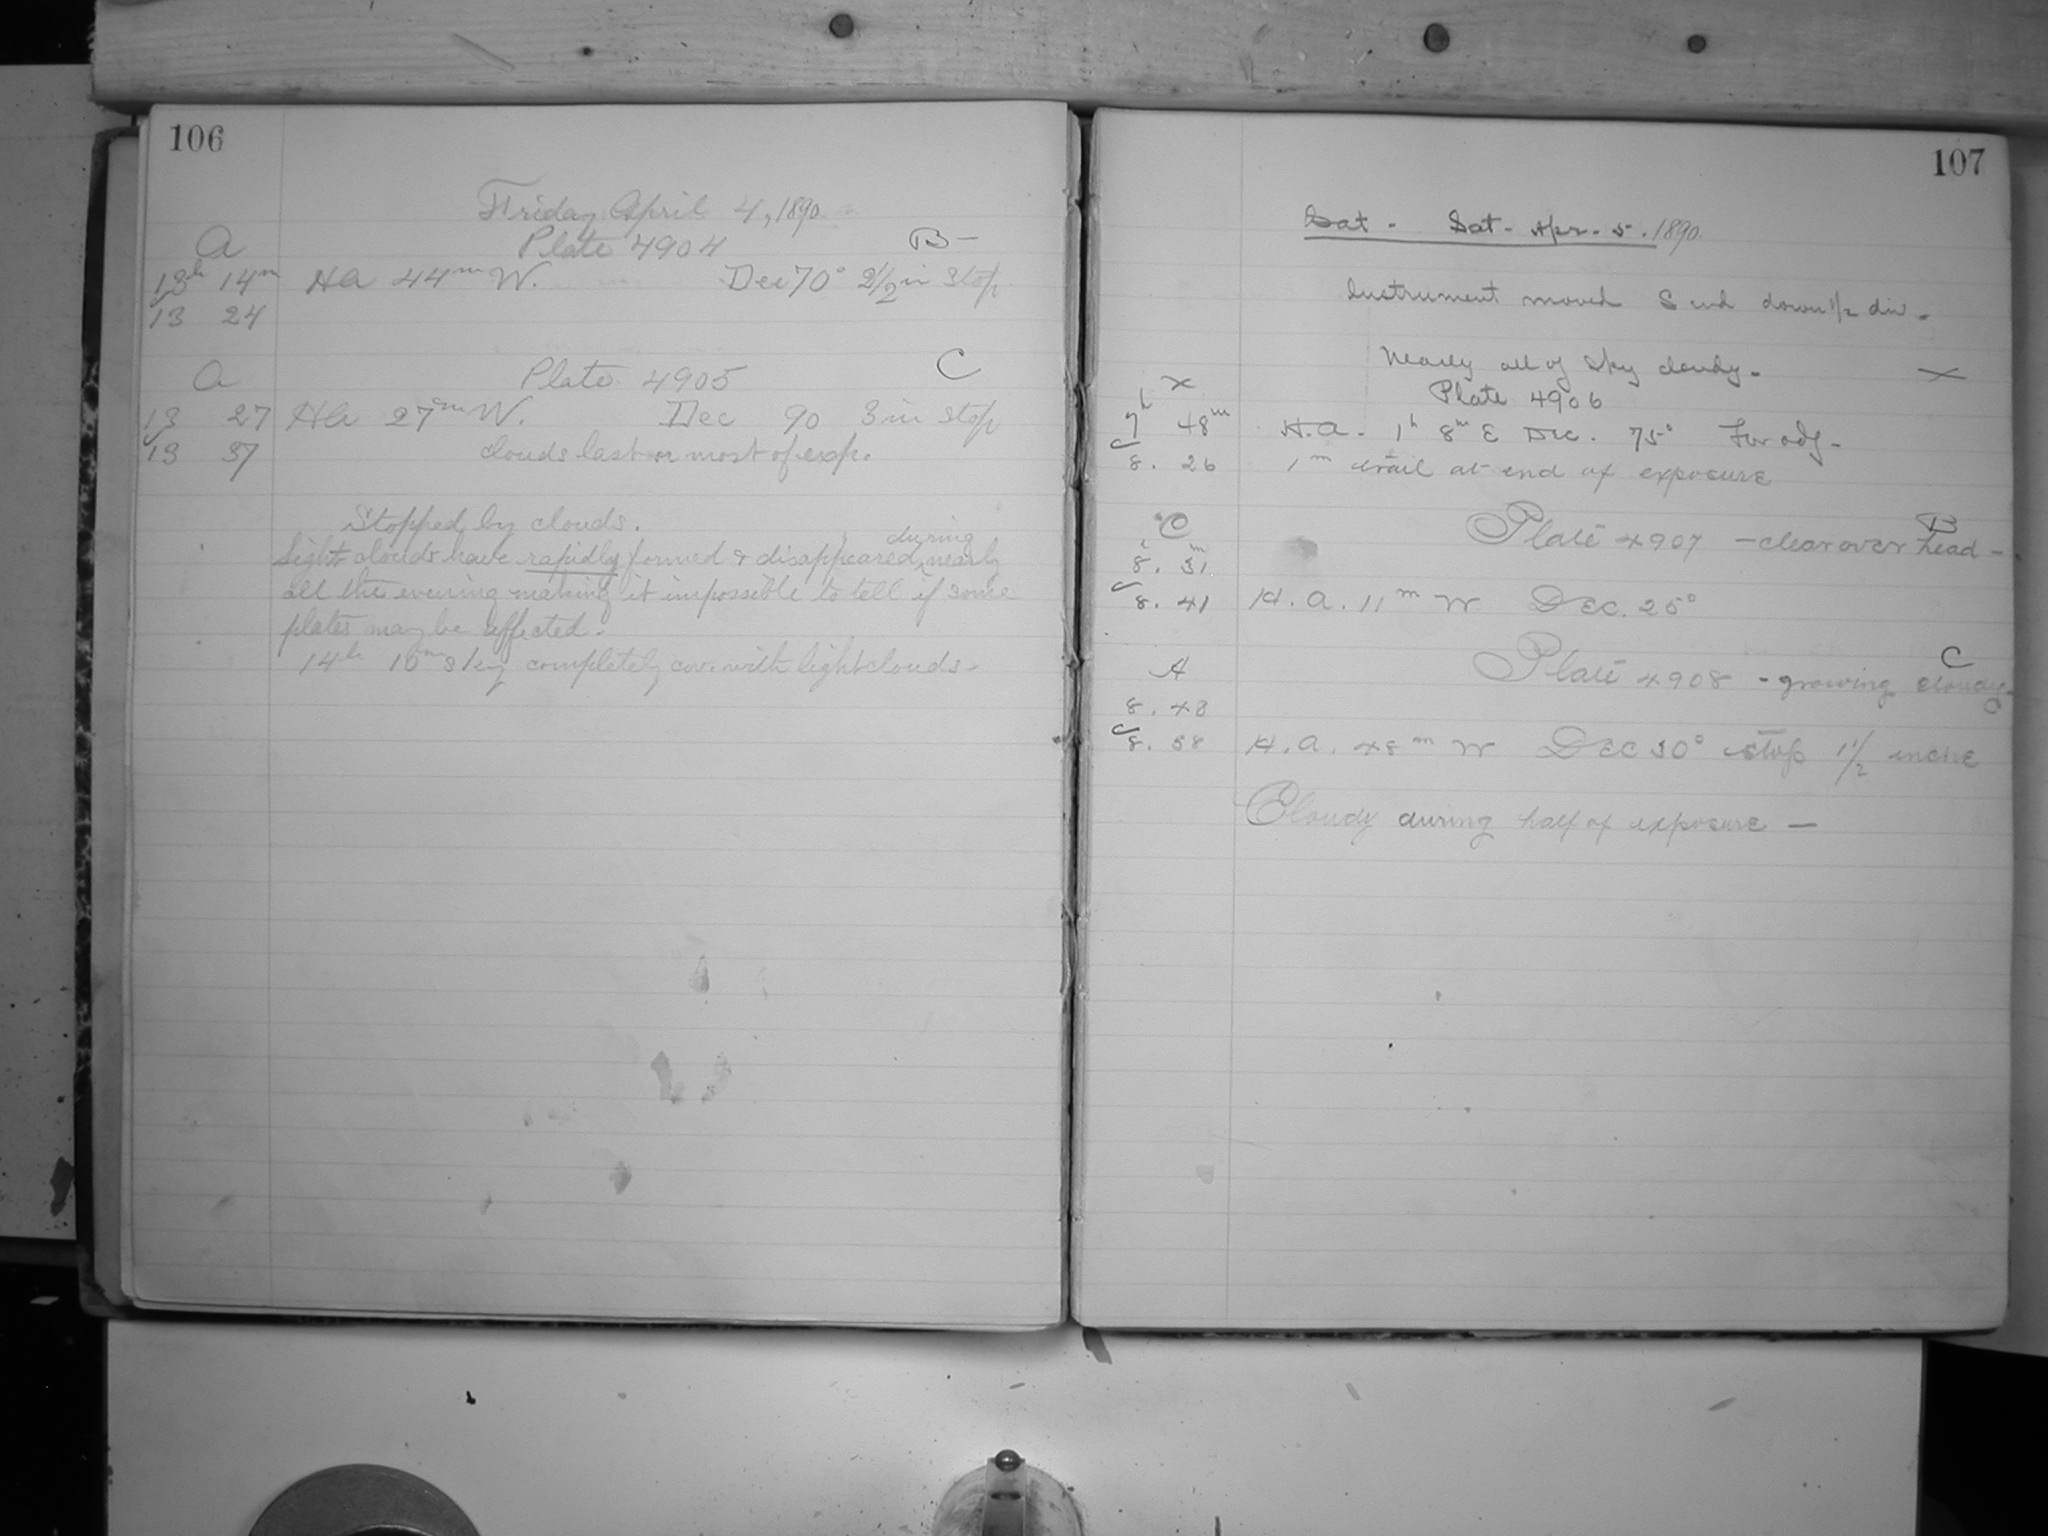 106
Friday April 4, 1890
A Plate 4904 B-
13h 14m HA 44m W. Dec 70° 2 1/2 in Stop
13 24
A Plate 4905 C
13 27 HA 27m W. Dec 90 3 in Stop
13 37 clouds last or most of exp.
Stopped by clouds.
during
Light clouds have rapidly formed & disappeared nearly
all the evening making it impossible to tell if some
plates may be affected.
14h 10m sky completely cov. with light clouds-
107
Sat - Sat - Apr. 5. 1890.
Instrument moved S end down 1/2 div.
Nearly all of sky cloudy. X
X Plate 4906
7h 48m H.A. 1h 8m E Dec. 75° For adj-
8. 26 1m trail at end of exposure
C Plate 4907 - clear over head - B
8. 31
8. 41 H.A. 11m W DEC. 25°
A Plate 4908 - growing cloudy - C
8. 48
8. 58 H.A. 48m W DEC 30° stop 1 1/2 inche
Cloudy during half of exposure —